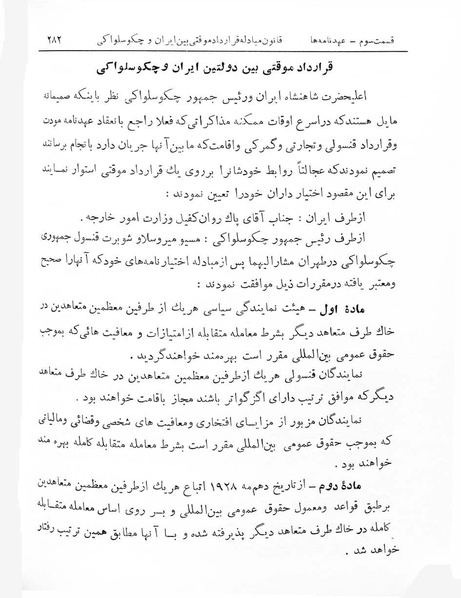 قسمت سوم – عهدنامه‌ها قانون مبادله قرارداد موقتی بین ایران و چکوسلواکی ۲۸۲
قرارداد موقتی بین دولتین ایران و چکوسلواکی
اعلیحضرت شاهنشاه ایران و رئیس جمهور چکوسلواکی نظر باینکه صمیمانه
مایل هستند که در اسرع اوقات ممکنه مذاکراتی که فعلا راجع بانعقاد عهدنامه مودت
و قرارداد قنسولی و تجارتی و گمرکی و اقامت که ما بین آنها جریان دارد بانجام برسانند
تصمیم نمودند که عجالتاً روابط خودشانرا بر روی یك قرارداد موقتی استوار نمایند
برای این مقصود اختیار داران خود را تعیین نمودند :
از طرف ایران : جناب آقای پاك روان کفیل وزارت امور خارجه .
از طرف رئیس جمهور چکوسلواکی : مسیو میروسلاو شوبرت قنسول جمهوری
چکوسلواکی در طهران مشارالیهما پس از مبادله اختیار نامه‌های خود که آنها را صحیح
و معتبر یافته در مقررات ذیل موافقت نمودند :
مادۀ اول – هیئت نمایندگی سیاسی هر یك از طرفین معظمین متعاهدین در
خاك طرف متعاهد دیگر بشرط معامله متقابله از امتیازات و معافیت هائی که بموجب
حقوق عمومی بین‌المللی مقرر است بهره‌مند خواهند گردید .
نمایندگان قنسولی هر یك از طرفین معظمین متعاهدین در خاك طرف متعاهد
دیگر که موافق ترتیب دارای اگزکواتر باشند مجاز باقامت خواهند بود .
نمایندگان مزبور از مزایای افتخاری و معافیت های شخصی و قضائی و مالیاتی
که بموجب حقوق عمومی بین‌المللی مقرر است بشرط معامله متقابله کامله بهره مند
خواهند بود .
مادۀ دوم – از تاریخ دهم مه ۱۹۲۸ اتباع هر یك از طرفین معظمین متعاهدین
بر طبق قواعد و معمول حقوق عمومی بین‌المللی و بر روی اساس معامله متقابله
کامله در خاك طرف متعاهد دیگر پذیرفته شده و با آنها مطابق همین ترتیب رفتار
خواهد شد .